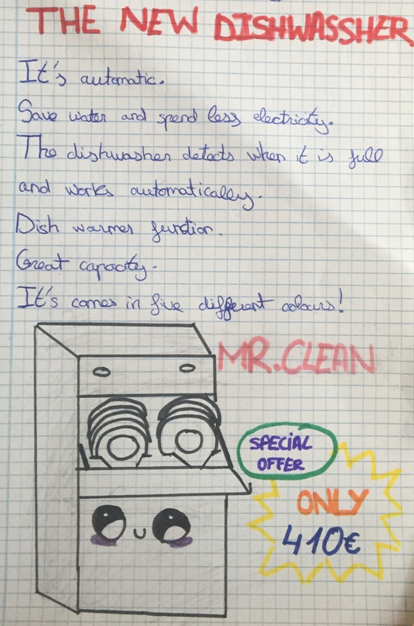 THE NEW DISHWASSHER
It's automatic.
Save water and spend less electricity.
The dishwasher detects when it is full
and works automaticaley.
Dish warmer function.
Great capacity.
It's comes in five different colours!
MR.CLEAN
SPECIAL
OFFER
ONLY
410€